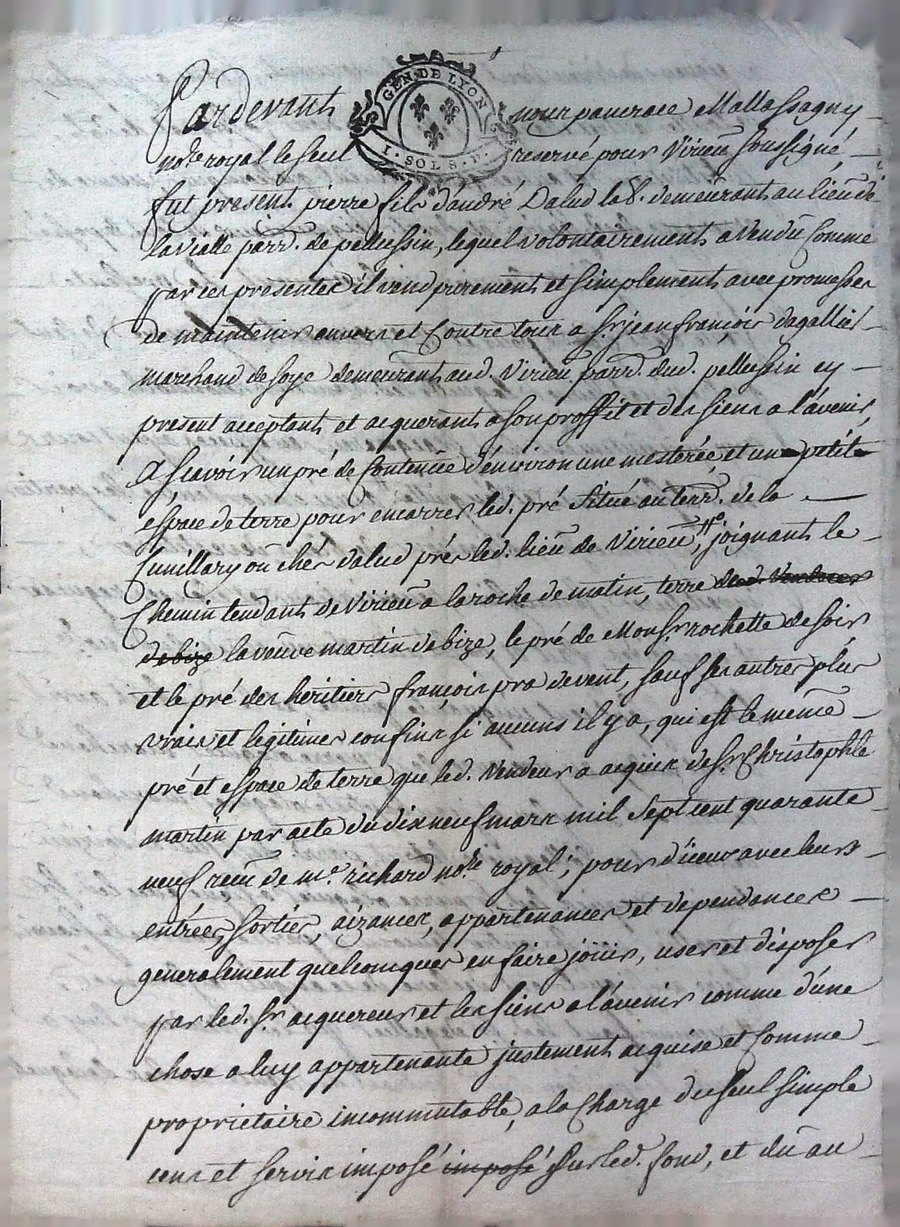 GEN. DE LYON
I. SOL 8. D.
Pardevant nous pancrace Mallassagny
nore royal le seul reservé pour Virieu soussigné
fut present pierre fils d'andré Dalud lab. demeurant au lieu de
la vialle parr. de pellussin, lequel volontairement a vendu comme
par ces presentes il vend purement et simplement avec promesses
de maintenir envers et Contre tous a Sr. jean françois dagallier
marchand de soye demeurant aud. Virieu parr. dud. pellussin cy
present acceptant et acquerant a son proffit et des siens a l'avenir
A sçavoir un pré de Contenüe d'environ une mesterée et un petit
éspace de terre pour encarrer led. pré situé au terr. de la
Cunillary ou chez dalud prés led. lieu de Virieu, joignant le
Chemin tendant de Virieu a la roche de matin, terre
de bize la veuve martin de bize, le pré de Monsr. rochette de soir
et le pré des heritiers françois pra de vent, sauf ses autres plus
vrais et legitimes confins si aucuns il y a, qui est le même
pré et espace de terre que led. Vendeur a acquis de Sr. Christophle
martin par acte du dix neuf mars mil Sept cent quarante
neuf reçu de me. richard nore. royal; pour d'iceux avec leurs
entrées, sorties, aizances, appartenances et dependances
generalement quelconques en faire joüir, user et disposer
par led. Sr. acquereur et les siens a l'avenir comme d'une
chose a luy appartenante justement acquise et Comme
proprietaire incommutable, a la Charge du seul simple
cens et servis imposé imposé sur led. fond, et du au